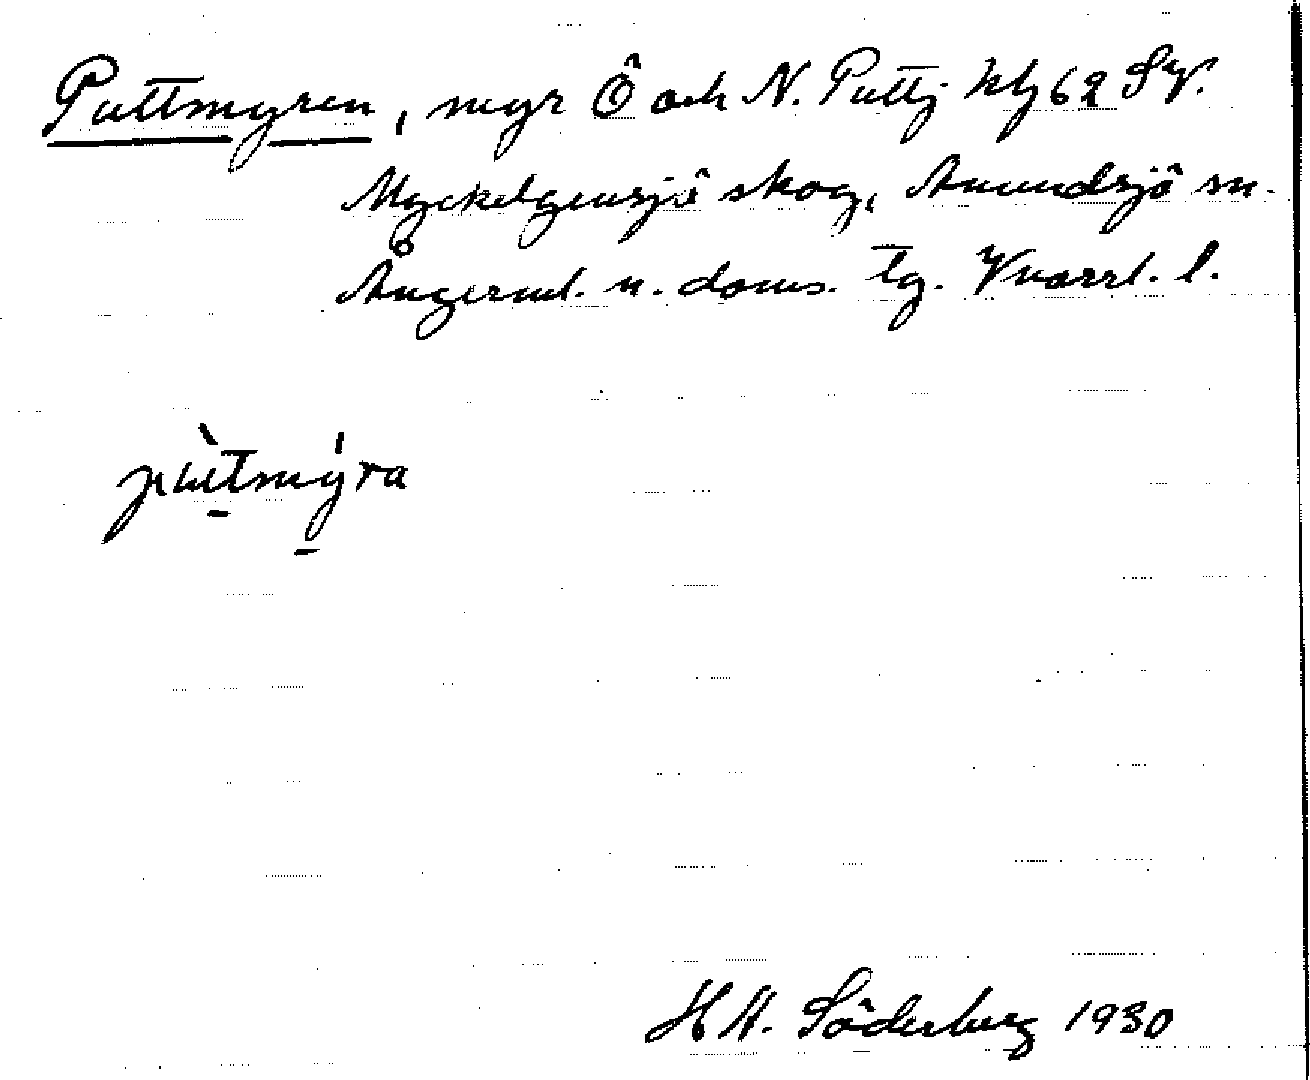 Puttmyren, myr Ö och N. Puttj kbl 62 SV.
Myckelgensjö skog, Anundsjö sn.
Ångerml. n. doms. Tg. Vnorrl. l.
pùttmy̍ra
H A. Söderberg 1930